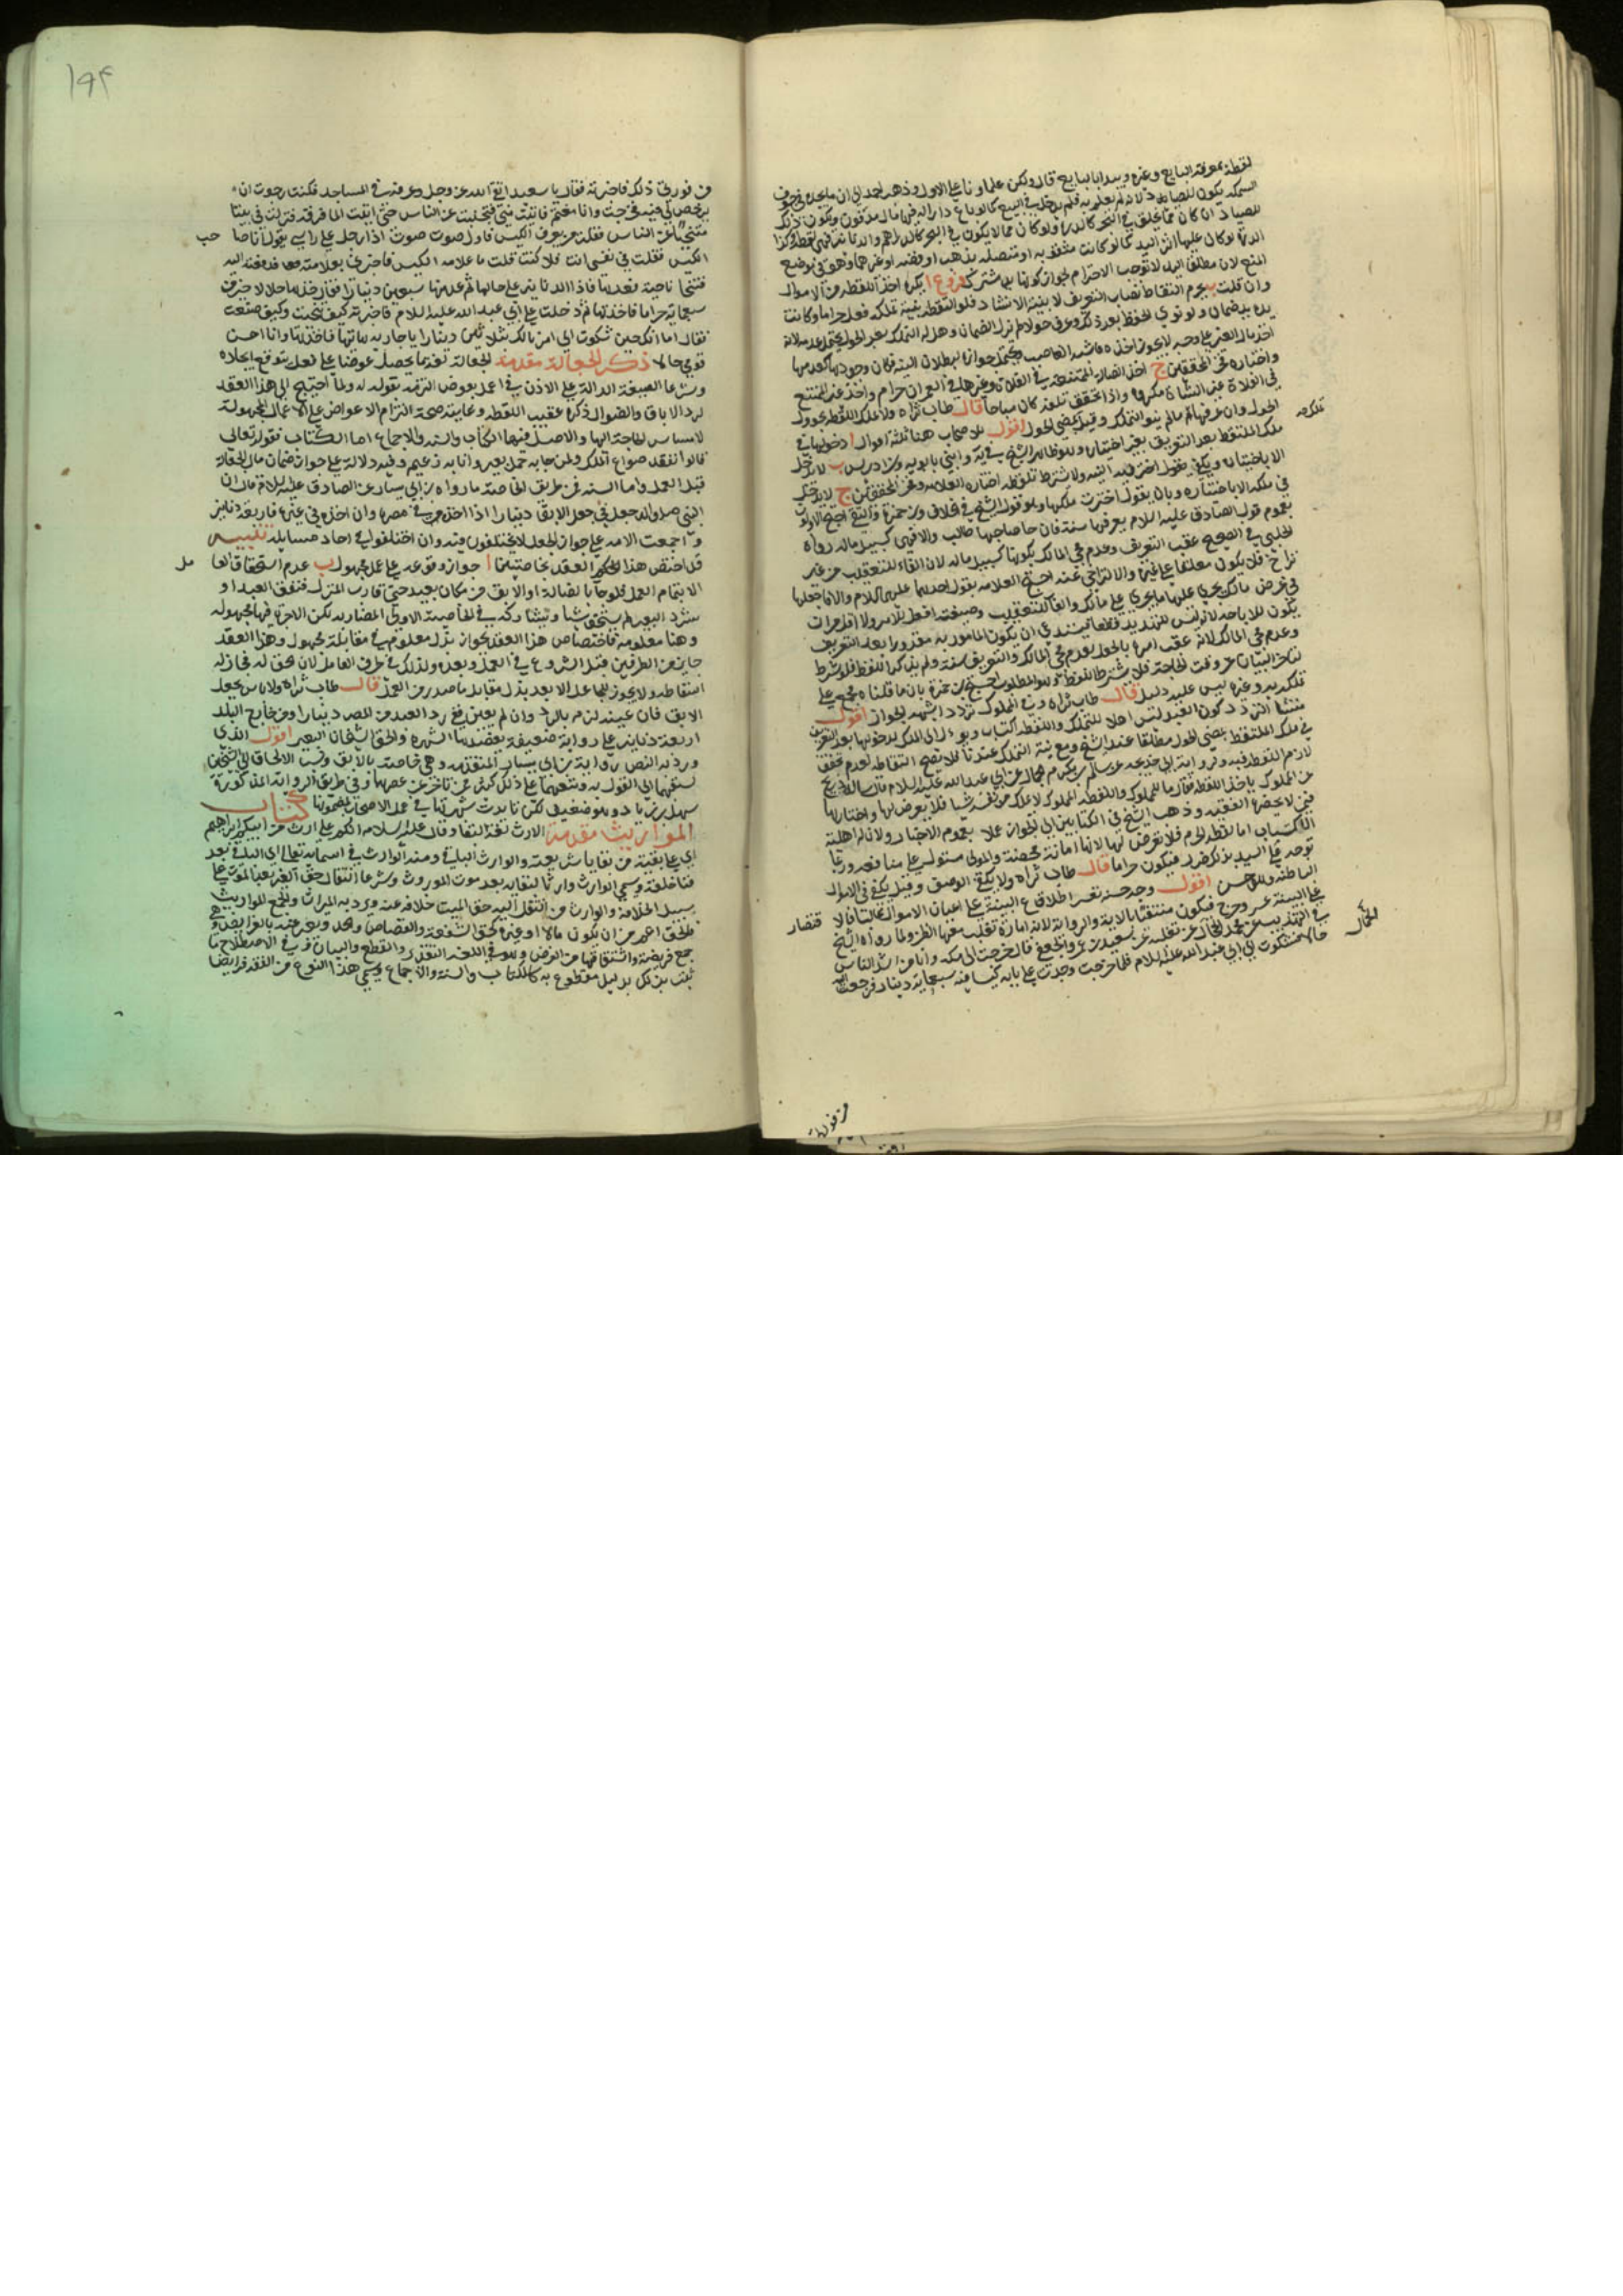 لقطة بمعرفة البايع وغيره ويبدا بالبايع قال ولكن علماونا على الاول وذهب احمد الى ان ما يجده في جوف
السمكة يكون للصياد لانه لم يعلم به فلم يدخل في البيع كما لو باع دارا له فيها مال مدفون ويكون ذلك
للصياد ان كان مما يخلق في البحر كالدرة ولو كان مما لا يكون في البحر كالدراهم والدنانير فهي لقطة وكذا
الدرة لو كان عليها اثر اليد كما لو كانت مثقوبة او متصلة بذهب او فضة او غيرهما وهو في موضع
المنع لان مطلق اليد لا توجب الاحترام لجواز كونها يد مشترك فروع ا يكره اخذ اللقطة من الاموال
وان قلت ب يحرم التقاط نصاب التعريف لا بنية الانشاد فلو التقطه بنية تملكه فعل حراما وكانت
يده يد ضمان ولو نوى الحفظ بعد ذلك وعرف حولا لم يزل الضمان وهل له التملك بعد الحول يحتمل عدمه لانه
اخذ مال الغير على وجه لا يجوز اخذه فاشبه الغاصب ويحتمل جوازه لبطلان النية فكان وجودها كعدمها
واختاره فخر المحققين ج اخذ الضالة الممتنعة في الفلاة وغيرها في العمران حرام واخذ غير الممتنع
في الفلاة غير الشاة مكروه واذا تحقق تلفه كان مباحا قال طاب ثراه ولا تملك اللقطة بحوول
تملكه
الحول وان عرفها ما لم ينو التملك وقيل بمضي الحول اقول للاصحاب هنا ثلثة اقوال ا دخولها في
ملك الملتقط بعد التعريف بغير اختياره وهو ظاهر الشيخ في ية وابني بابويه وابن ادريس ب لا تدخل
الا باختياره ويكفي فيه النية ولا يشترط تلفظه اختاره العلامة وفخر المحققين ج لا يدخل
في ملكه الا باختياره وبان يقول اخترت ملكها وهو قول الشيخ في الخلاف وابن حمزة والتقي احتج الاولون
بعموم قول الصادق عليه السلام يعرفها سنة فان جا صاحبها طالب والا فهي كسبيل ماله رواه
الحلبي في الصحيح عقب التعريف وعدم مجي المالك بكونها كسبيل ماله لان الفاء للتعقيب من غير
تراخ فلا يكون معلقا على غيره والا لتراخى عنه احتج العلامة بقول احدهما عليهما السلام والا فاجعلها
في عرض مالك يجري عليها ما يجري على مالك والفاء للتعقيب وصيغة افعل للامر ولا اقل مراتب
يكون للاباحة لانه ليس للتهديد قطعا فيستدعي ان يكون المامور به مقدورا بعد التعريف
وعدم مجي المالك لانه عقب امره بالجعل بعدم مجي المالك والتعريف سنة ولم يذكر اللفظ فلو شرط
لتاخر البيان عن وقت الحاجة فلا يشترط اللفظ وهو المطلوب احتج ابن حمزة بان ما قلناه مجمع على
تملكه به وغيره ليس عليه دليل قال طاب ثراه وفي المملوك تردد اشبهه الجواز اقول
منشا التردد كون العبد ليس اهلا للتملك واللقطة اكتساب
في ملك الملتقط بمضي الحول مطلقا عند الشيخ ومع نية التملك عندنا فلا يصح التقاطه لعدم تحقق
لازم اللقطة فيه ولرواية ابي خديجة عن سالم بن مكرم الجمال عن ابي عبد الله عليه السلام قال سأله ذريح
عن المملوك ياخذ اللقطة فقال ما للمملوك واللقطة المملوك لا يملك من نفسه شيا فلا يعرض لها واختارها
فيمن لا يحضره الفقيه وذهب الشيخ في الكتابين الى الجواز عملا بعموم الاخبار ولان له اهلية
الاكتساب اما لقطة الحرم فلا تعرض لها لانها امانة محضة والمولى مستول على منافعه وربما
توجه على السيد بذلك ضرر فيكون حراما قال طاب ثراه ولا يكفي الوصف وقيل يكفي في الاموال
الباطنة وهو حسن اقول وجه حسنه تعسر اطلاع البينة على اعيان الاموال غالبا فلا
قتضار
على البينة عسر وحرج فيكون منتفيا بالاية والرواية لانه امارة تغلب معها الظن ولما رواه الشيخ
في التهذيب عن محمد الحجال عن ثعلبة عن سعيد بن عمرو الجعفي قال خرجت الى مكة وانا من اشد الناس
الحجال
حالا فشكوت الى ابي عبد الله عليه السلام فلما خرجت وجدت على بابه كيسا فيه سبعماية دينار فرجعت اليه
من فوري
١٩٤
من فوري ذلك فاخبرته فقال يا سعيد اتق الله عز وجل وعرفه في المساجد فكنت رجوت ان
يرخص لي فيه فخرجت وانا مغتم فاتيت منى فتنحيت عن الناس حتى اتيت الما فرقة فنزلت في بيتا
متنحيا عن الناس فقلت من يعرف الكيس فاول صوت صوت اذا رجل على راسي يقول انا صا
حب
الكيس فقلت في نفسي انت فلا كنت قلت ما علامة الكيس فاخبرني بعلامته فدفعته اليه
فتنحى ناحية فعدها فاذا الدنانير على حالها ثم عد منها سبعين دينارا فقال خذها حلالا خير من
سبعماية حراما فاخذتها ثم دخلت على ابي عبد الله عليه السلام فاخبرته كيف تنحيت وكيف صنعت
فقال اما انك حين شكوت الي امرنا لك بثلاثين دينارا يا جارية هاتها فاخذتها وانا احسن
قومي حالا ذكر الجعالة مقدمة الجعالة لغة ما يحصل عوضا على فعل يتوقع ايجاده
وشرعا الصيغة الدالة على الاذن في عمل بعوض التزمه بقوله له ولما احتيج الى هذا العقد
لرد الاباق والضوال ذكره عقيب اللقطة وغايته صحة التزام الاعواض على الاعمال المجهولة
لمساس الحاجة اليها والاصل فيها الكتاب والسنة والاجماع اما الكتاب فقوله تعالى
قالوا نفقد صواع الملك ولمن جا به حمل بعير وانا به زعيم وفيه دلالة على جواز ضمان مال الجعالة
قبل العمل واما السنة فمن طريق الخاصة ما رواه ابن ابي سيار عن الصادق عليه السلام قال ان
النبي صلى الله عليه واله جعل في جعل الابق دينارا اذا اخذ في مصره وان اخذ في غيره فاربعة دنانير
واجمعت الامة على جواز الجعل لا يختلفون فيه وان اختلفوا في احاد مسايله تنبيه
قد اختص هذا العقد بخاصيتين ا جواز وقوعه على عمل مجهول ب عدم استحقاق العا
مل
الا بتمام العمل فلو جا بالضالة او الابق من مكان بعيد حتى قارب المنزل فنفق العبد او
شرد البعير لم يستحق شيا ويشاركه في الخاصية الاولى المضاربة لكن الاجرة فيها مجهولة
وهنا معلومة فاختصاص هذا العقد بجواز بذل معلوم في مقابلة مجهول وهذا العقد
جايز من الطرفين قبل الشروع في العمل وبعده ولذلك في طرف العامل لان الحق له فجاز له
اسقاطه ولا يجوز للجاعل الا بعد بذل مقابل ما صدر من العمل قال طاب ثراه ولا باس بجعل
الابق فان عينه لزم بالرد وان لم يعين ففي رد العبد من المصر دينارا ومن خارج البلد
اربعة دنانير على رواية ضعيفة يعضدها الشهرة والحق الشيخان البعير اقول الذي
ورد به النص رواية ابن ابي سيار المتقدمة وهي خاصة بالابق ونسب الالحاق الى الشيخين
لسبقهما الى القول به وتبعهما على ذلك كثير ممن تاخر عن عصرهما وفي طريق الرواية المذكورة
سهل بن زياد وهو ضعيف لكن تايدت شهرتها في عمل الاصحاب بمضمونها كتاب
المواريث مقدمة الارث لغة البقا وقال عليه السلام انكم على ارث من ابيكم ابراهيم
اي على بقية من بقايا شريعته والوارث الباقي ومنه الوارث في اسمايه تعالى اي الباقي بعد
فنا خلقه وسمي الوارث وارثا لبقايه بعد موت الموروث وشرعا انتقال حق الغير بعد الموت على
سبيل الخلافة والوارث من انتقل اليه حق الميت خلافة عنه ويرد به الميراث والجمع المواريث
والحق اعم من ان يكون مالا او غيره كحق الشفعة والقصاص والحد ويعبر عنه بالفرايض وهي
جمع فريضة واشتقاقها من الفرض وهو في اللغة التقدير والقطع والبيان وفي الاصطلاح ما
ثبت بذلك بدليل مقطوع به كالكتاب والسنة والاجماع وسمي هذا النوع من الفقه فرايضا